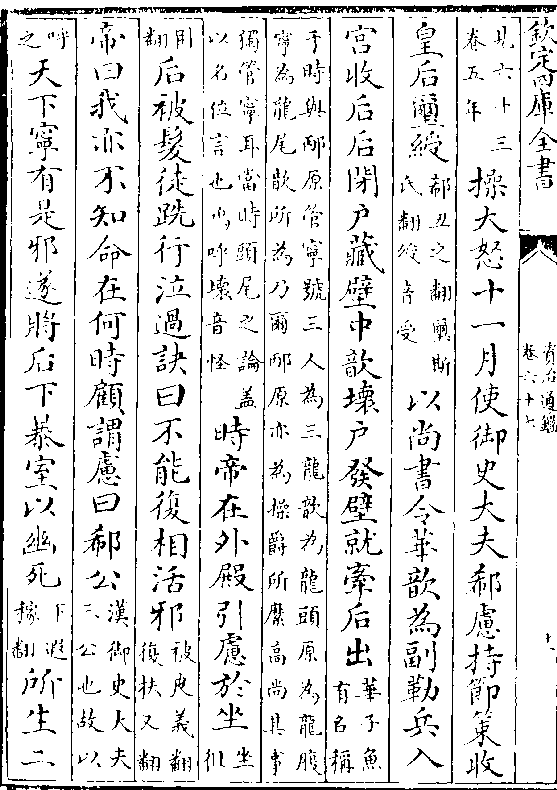 欽定四庫全書
資治通鑑
卷六十七
見六十三
卷五年
操大怒十一月使御史大夫郗慮持節策收
皇后璽綬
郗丑之翻璽斯
氏翻綬音受
以尚書令華歆為副勒兵入
宮收后后閉戶藏壁中歆壞戶發壁就牽后出
華子魚
有名稱
于時與邴原管寧號三人為三龍歆為龍頭原為龍腹
寧為龍尾歆所為乃爾邴原亦為操爵所縻高尚其事
獨管寧耳當時頭尾之論蓋
以名位言也嗚呼壞音怪
時帝在外殿引慮於坐
坐
徂
臥
翻
后被髮徒跣行泣過訣曰不能復相活邪
被皮義翻
復扶又翻
帝曰我亦不知命在何時顧謂慮曰郗公
漢御史大夫
三公也故以
呼
之
天下寧有是邪遂將后下暴室以幽死
下遐
稼翻
所生二